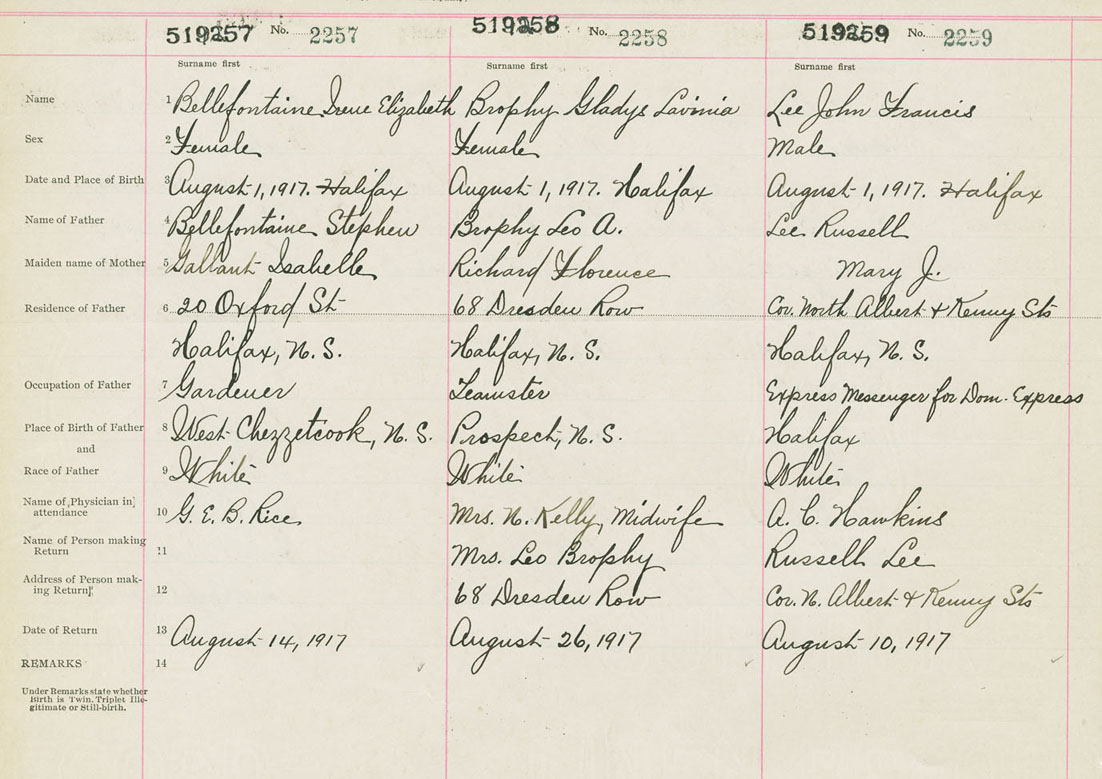 519257 No. 2257 519258 No. 2258 519259 No. 2259
Surname first Surname first Surname first
Name 1 Bellefontaine Irene Elizabeth Brophy Gladys Lavinia Lee John Francis
Sex 2 Female Female Male
Date and Place of Birth 3 August 1, 1917. Halifax August 1, 1917. Halifax August 1, 1917. Halifax
Name of Father 4 Bellefontaine Stephen Brophy Leo A. Lee Russell
Maiden name of Mother 5 Gallant Isabelle Richard Florence Mary J.
Residence of Father 6 20 Oxford St 68 Dresden Row Cor. North Albert & Kenny Sts
Halifax, N. S. Halifax, N. S. Halifax, N. S.
Occupation of Father 7 Gardener Teamster Express Messenger for Dom. Express
Place of Birth of Father 8 West Chezzetcook, N. S. Prospect, N. S. Halifax
and
Race of Father 9 White White White
Name of Physician in
attendance 10 G. E. B. Rice Mrs. N. Kelly, Midwife A. C. Hawkins
Name of Person making
Return 11 Mrs. Leo Brophy Russell Lee
Address of Person mak-
ing Return 12 68 Dresden Row Cor. N. Albert & Kenny Sts
Date of Return 13 August 14, 1917 August 26, 1917 August 10, 1917
REMARKS 14
Under Remarks state whether
Birth is Twin, Triplet Ille-
gitimate or Still-birth.